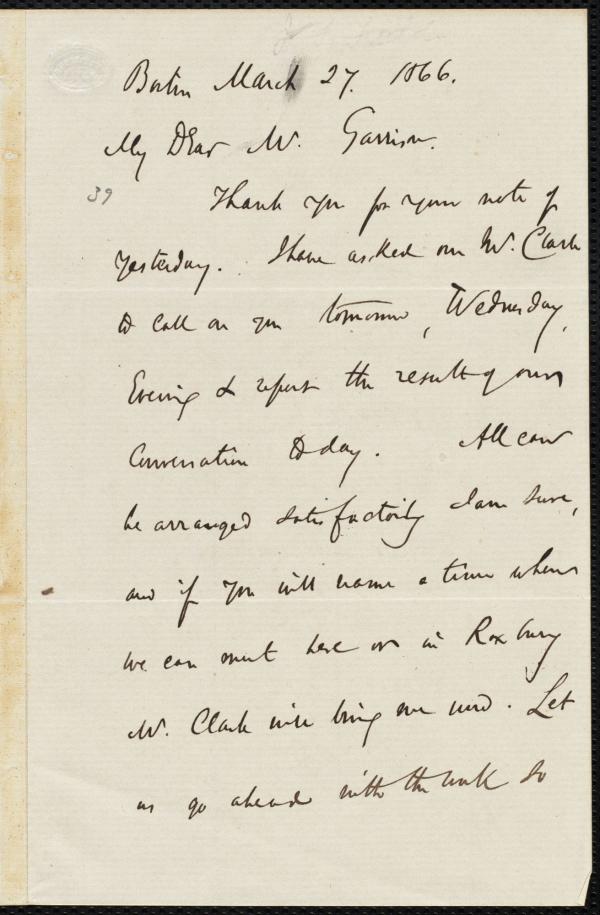 Boston March 27. 1866.
My Dear Mr. Garrison.
39
Thank you for your note of
yesterday. I have asked our Mr. Clark
to call on you tomorrow, Wednesday,
Evening & report the result of our
Conversation to day. All can
be arranged satisfactorily I am sure,
and if you will name a time when
we can meet here or in Roxbury
Mr. Clark will bring me word. Let
us go ahead with the work so